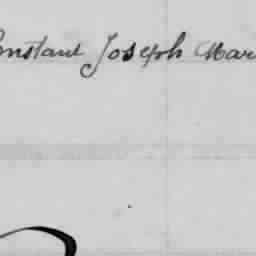 onstant Joseph Mar